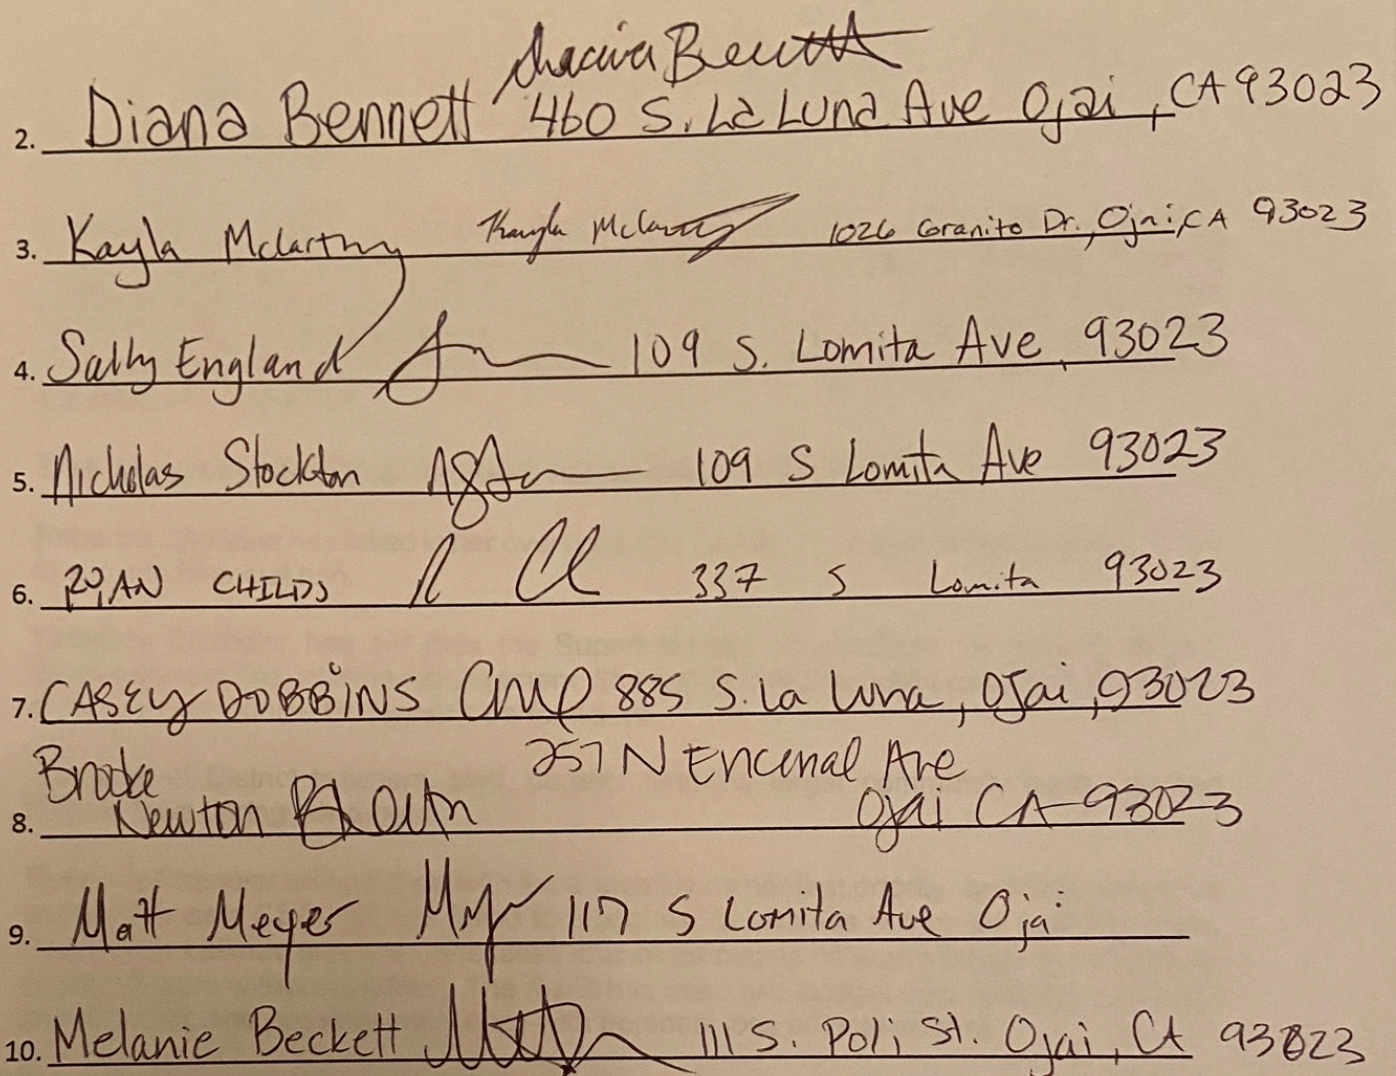 2. Diana Bennett 460 S. La Luna Ave Ojai, CA 93023
3. Kayla McCarthy Kayla McCarthy 1026 Coranito Dr., Ojai, CA 93023
4. Sally England 109 S. Lomita Ave, 93023
5. Nicholas Stockton 109 S Lomita Ave 93023
6. RYAN CHILDS 337 S Lomita 93023
7. CASEY DOBBINS 885 S. La Luna, Ojai, 93023
Brooke 257 N Encinal Ave
8. Newton Ojai CA 93023
9. Matt Meyer 117 S Lomita Ave Ojai
10. Melanie Beckett 111 S. Poli St. Ojai, CA 93023